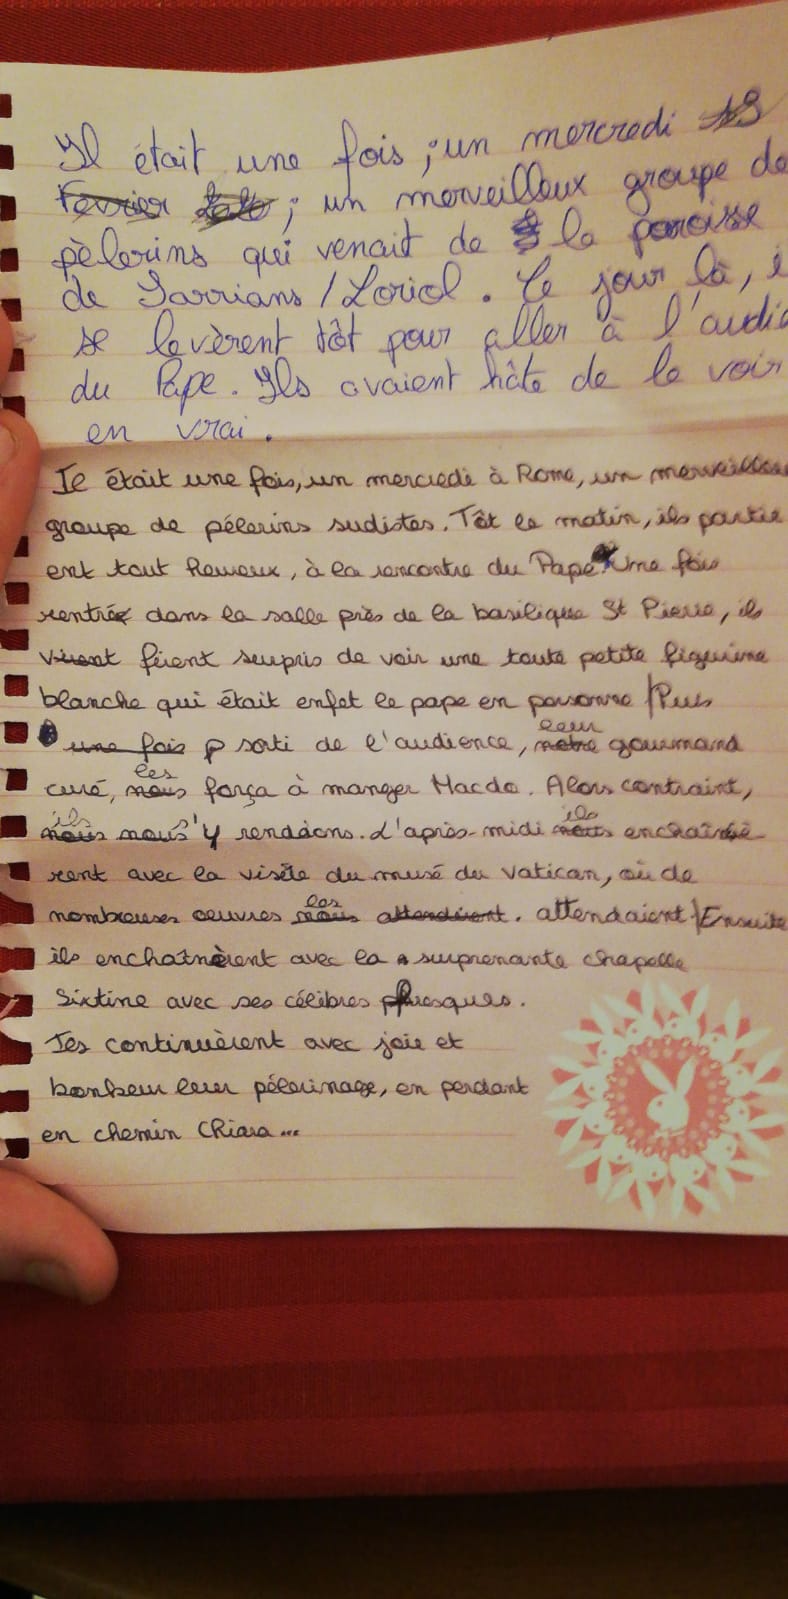 Il était une fois ; un mercredi 19
Février ; un merveilleux groupe de
pèlerins qui venait de la paroisse
de Sarrians / Loriol . Ce jour là , i
se levèrent tôt pour aller à l'audie
du Pape . Ils avaient hâte de le voir
en vrai .
Il était une fois, un mercredi à Rome, un merveilleux
groupe de pélerins sudistes. Tôt le matin, ils partir
ent tout heureux, à la rencontre du Pape. Une fois
rentrée dans la salle près de la basilique St Pierre, ils
virent fûrent surpris de voir une toute petite figurine
blanche qui était enfet le pape en personne / Puis
une fois p sorti de l'audience, notre leur gourmand
curé, nous les força à manger Macdo. Alors contraint,
nous nous ils s'y rendâons. L'après-midi nous ils enchaînè
rent avec la visite du musé du Vatican, où de
nombreuses oeuvres nous les attendirent. attendaient / Ensuite
ils enchaînèrent avec la surprenante chapelle
Sixtine avec ses célèbres phresques.
Ies continuèrent avec joie et
bonheur leur pélerinage, en perdant
en chemin Chiara...